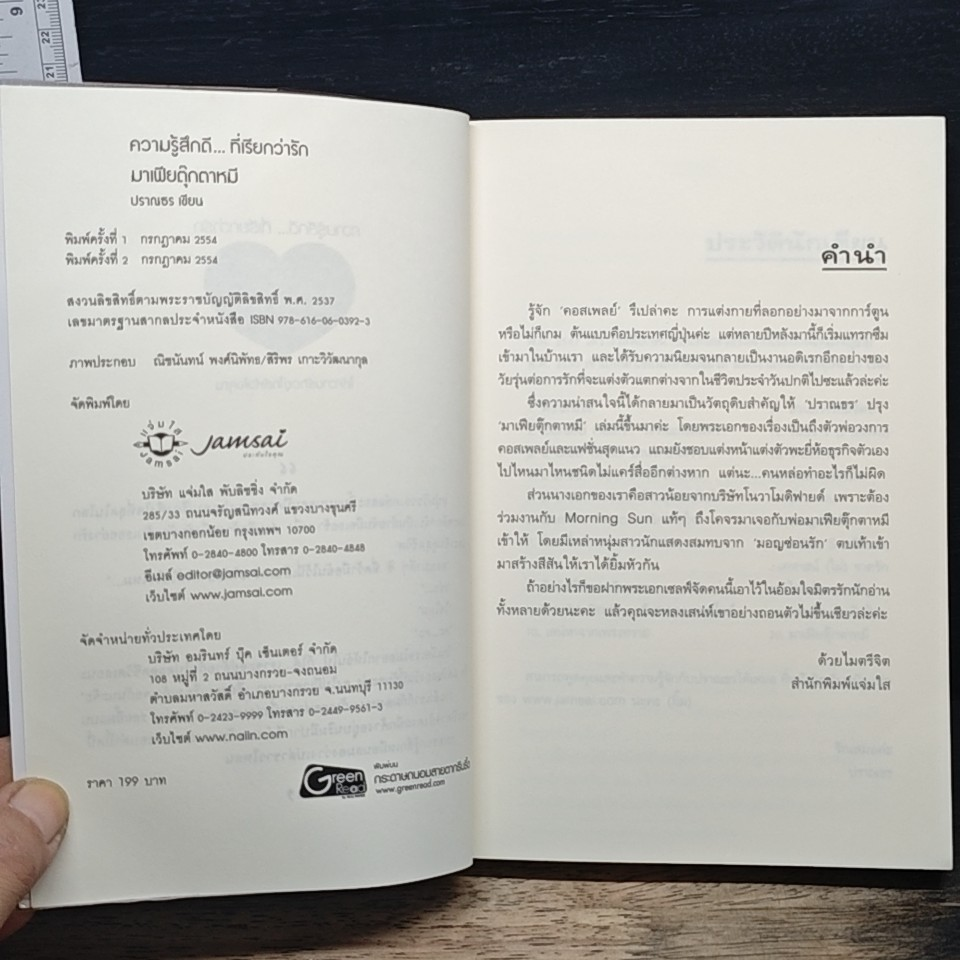 9
23
22
21
ความรู้สึกดี... ที่เรียกว่ารัก
มาเฟียตุ๊กตาหมี
ปราณธร เขียน
พิมพ์ครั้งที่ 1 กรกฎาคม 2554
พิมพ์ครั้งที่ 2 กรกฎาคม 2554
สงวนลิขสิทธิ์ตามพระราชบัญญัติลิขสิทธิ์ พ.ศ. 2537
เลขมาตรฐานสากลประจำหนังสือ ISBN 978-616-06-0392-3
ภาพประกอบ ณิชนันทน์ พงศ์นิพัทธ/สิริพร เกาะวิวัฒนากุล
จัดพิมพ์โดย
แจ่มใส
Jamsai
Jamsai
บริษัท แจ่มใส พับลิชชิ่ง จำกัด
285/33 ถนนจรัญสนิทวงศ์ แขวงบางขุนศรี
เขตบางกอกน้อย กรุงเทพฯ 10700
โทรศัพท์ 0-2840-4800 โทรสาร 0-2840-4848
อีเมล์ editor@jamsai.com
เว็บไซต์ www.jamsai.com
จัดจำหน่ายทั่วประเทศโดย
บริษัท อมรินทร์ บุ๊ค เซ็นเตอร์ จำกัด
108 หมู่ที่ 2 ถนนบางกรวย-จงถนอม
ตำบลมหาสวัสดิ์ อำเภอบางกรวย จ.นนทบุรี 11130
โทรศัพท์ 0-2423-9999 โทรสาร 0-2449-9561-3
เว็บไซต์ www.naiin.com
ราคา 199 บาท
Green
Read
พิมพ์บน
กระดาษถนอมสายตากรีนรี้ด
www.greenread.com
คำนำ
รู้จัก 'คอสเพลย์' รึเปล่าคะ การแต่งกายที่ลอกอย่างมาจากการ์ตูน
หรือไม่ก็เกม ต้นแบบคือประเทศญี่ปุ่นค่ะ แต่หลายปีหลังมานี้ก็เริ่มแทรกซึม
เข้ามาในบ้านเรา และได้รับความนิยมจนกลายเป็นงานอดิเรกอีกอย่างของ
วัยรุ่นต่อการรักที่จะแต่งตัวแตกต่างจากในชีวิตประจำวันปกติไปซะแล้วล่ะค่ะ
ซึ่งความน่าสนใจนี้ได้กลายมาเป็นวัตถุดิบสำคัญให้ 'ปราณธร' ปรุง
'มาเฟียตุ๊กตาหมี' เล่มนี้ขึ้นมาค่ะ โดยพระเอกของเรื่องเป็นถึงตัวพ่อวงการ
คอสเพลย์และแฟชั่นสุดแนว แถมยังชอบแต่งหน้าแต่งตัวพะยี่ห้อธุรกิจตัวเอง
ไปไหนมาไหนชนิดไม่แคร์สื่ออีกต่างหาก แต่นะ...คนหล่อทำอะไรก็ไม่ผิด
ส่วนนางเอกของเราคือสาวน้อยจากบริษัทโนวาโมดิฟายด์ เพราะต้อง
ร่วมงานกับ Morning Sun แท้ๆ ถึงโคจรมาเจอกับพ่อมาเฟียตุ๊กตาหมี
เข้าให้ โดยมีเหล่าหนุ่มสาวนักแสดงสมทบจาก 'มอญซ่อนรัก' ตบเท้าเข้า
มาสร้างสีสันให้เราได้ยิ้มหัวกัน
ถ้าอย่างไรก็ขอฝากพระเอกเซลฟ์จัดคนนี้เอาไว้ในอ้อมใจมิตรรักนักอ่าน
ทั้งหลายด้วยนะคะ แล้วคุณจะหลงเสน่ห์เขาอย่างถอนตัวไม่ขึ้นเชียวล่ะค่ะ
ด้วยไมตรีจิต
สำนักพิมพ์แจ่มใส